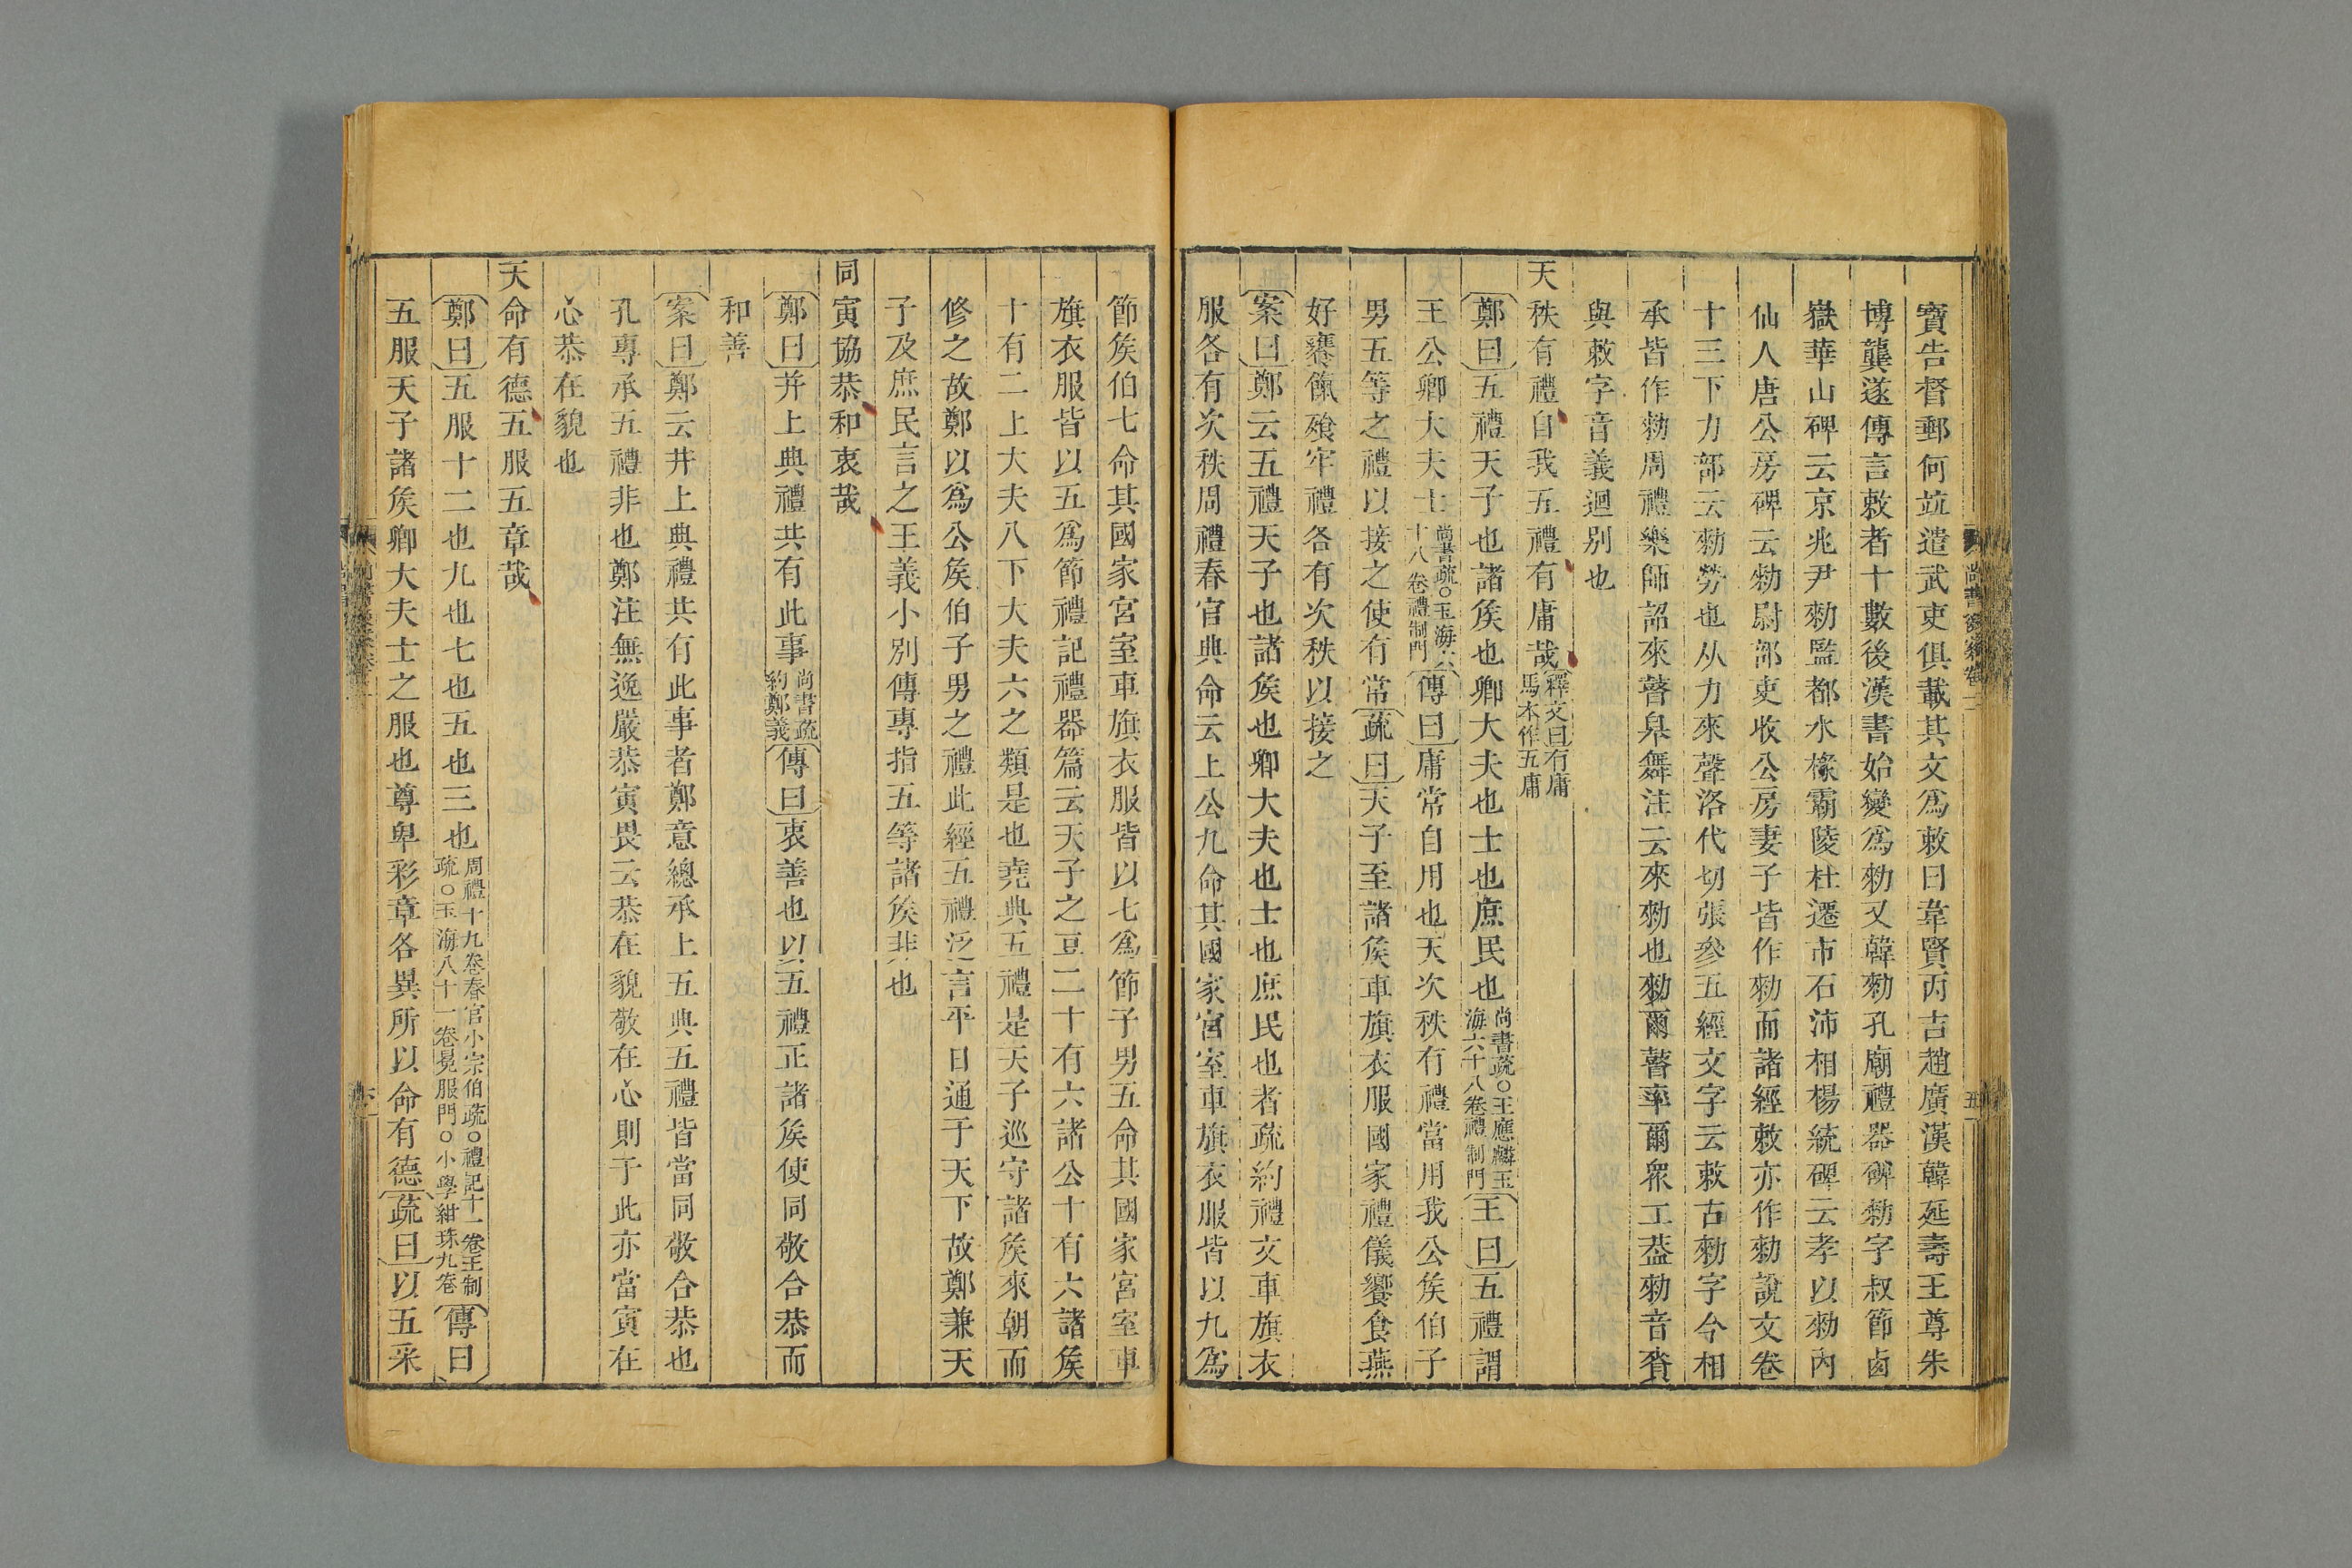 寶告督郵何竝遣武吏俱載其文爲敕曰韋賢丙吉趙廣漢韓延壽王尊朱
博龔遂傳言敕者十數後漢書始變爲勑又韓勑孔廟禮器碑勑字叔節卤
嶽華山碑云京兆尹勑監都水掾霸陵杜遷市石沛相楊統碑云孝以勑內
仙人唐公房碑云勑尉部吏收公房妻子皆作勑而諸經敕亦作勑說文卷
十三下力部云勑勞也从力來聲洛代切張參五經文字云敕古勑字今相
承皆作勑周禮樂師詔來瞽臯舞注云來勑也勑爾瞽率爾衆工葢勑音賚
與敕字音義迴别也
天秩有禮自我五禮有庸哉釋文曰有庸馬本作五庸
鄭曰五禮天子也諸矦也卿大夫也士也庶民也尚書疏○王應麟玉海六十八卷禮制門王曰五禮謂
王公卿大夫士尚書疏○玉海六十八卷禮制門傳曰庸常自用也天次秩有禮當用我公矦伯子
男五等之禮以接之使有常疏曰天子至諸矦車旗衣服國家禮儀饗食燕
好饔餼飱牢禮各有次秩以接之
案曰鄭云五禮天子也諸矦也卿大夫也士也庶民也者疏約禮文車旗衣
服各有次秩周禮春官典命云上公九命其國家宮室車旗衣服皆以九爲
節矦伯七命其國家宮室車旗衣服皆以七爲節子男五命其國家宮室車
旗衣服皆以五爲節禮記禮器篇云天子之豆二十有六諸公十有六諸矦
十有二上大夫八下大夫六之類是也堯典五禮是天子巡守諸矦來朝而
修之故鄭以爲公矦伯子男之禮此經五禮泛言平日通于天下故鄭兼天
子及庶民言之王義小別傳專指五等諸矦非也
同寅協恭和衷哉
鄭曰并上典禮共有此事尚書疏約鄭義傳曰衷善也以五禮正諸矦使同敬合恭而
和善
案曰鄭云并上典禮共有此事者鄭意總承上五典五禮皆當同敬合恭也
孔專承五禮非也鄭注無逸嚴恭寅畏云恭在貌敬在心則于此亦當寅在
心恭在貌也
天命有德五服五章哉
鄭曰五服十二也九也七也五也三也周禮十九卷春官小宗伯疏○禮記十一卷王制疏○玉海八十一卷冕服門○小學紺珠九卷傳曰
五服天子諸矦卿大夫士之服也尊卑彩章各異所以命有德疏曰以五采